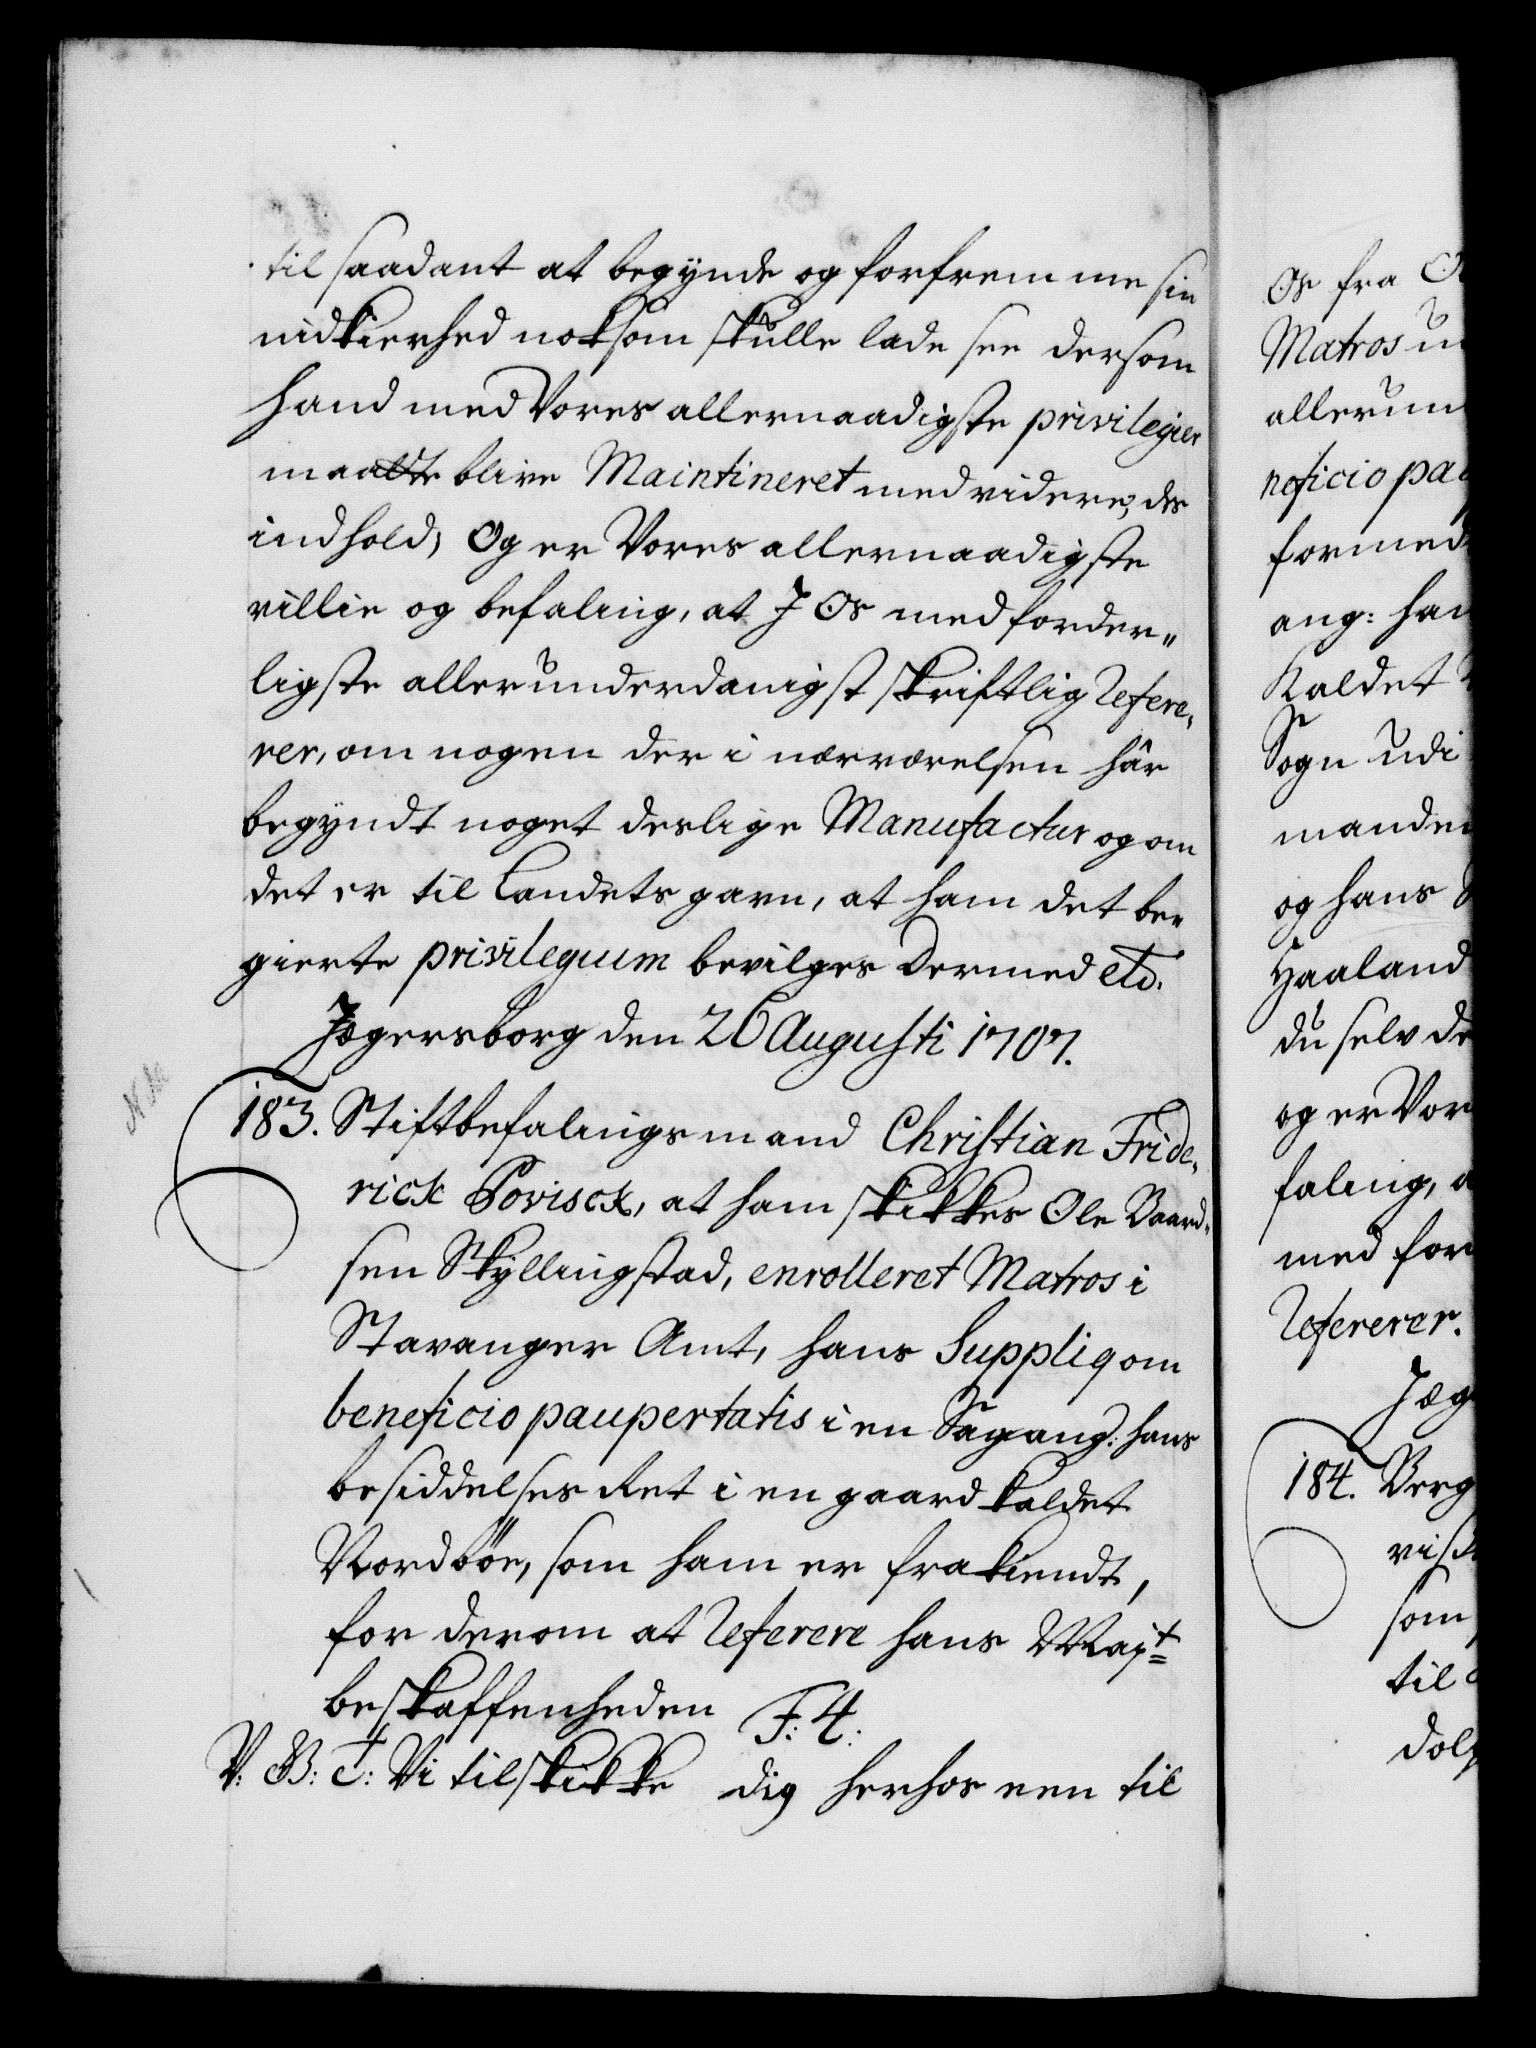 til saadant at begynde og forfremme sin
nidkierhed noksom skulle lade see dersom
hand med Vores allernaadigste privilegier
maatte blive Maintineret med videre, des
indhold; Og er Vores allernaadigste
villie og befaling, at J Os med forder„
ligste allerunderdanigst skriftlig Refere„
rer, om nogen der i nærværelsen hâr
begyndt noget deslige Manufactur og om
det er til Landets gavn, at ham det be„
gierte privilegium bevilges Dermed etc.
Jægersborg den 26 Augusti 1707.
183. Stiftbefalingsmand Christian Fride„
rick Povisck, at ham skikkes Ole Baard„
sen Skyllingstad, enrolleret Matros i
Stavanger Amt, hans Suppliq om
beneficio paupertatis i en Sag ang: hans
besiddelses Ret i en gaard kaldet
Nordböe, som ham er frakiendt,
for derom at Referere hans Maj:t
beskaffenheden F: 4:
V: G: T: Vi tilskikke dig herhos een til
Os fra
Matros
allerun
neficio pau
formed
ang: han
Kaldet
Sogn udi
manden
og hans
Haaland
du selv de
og er Vor
faling, a
med for
Refererer.
Jæg
184. Berg
visk
som
til
dolp